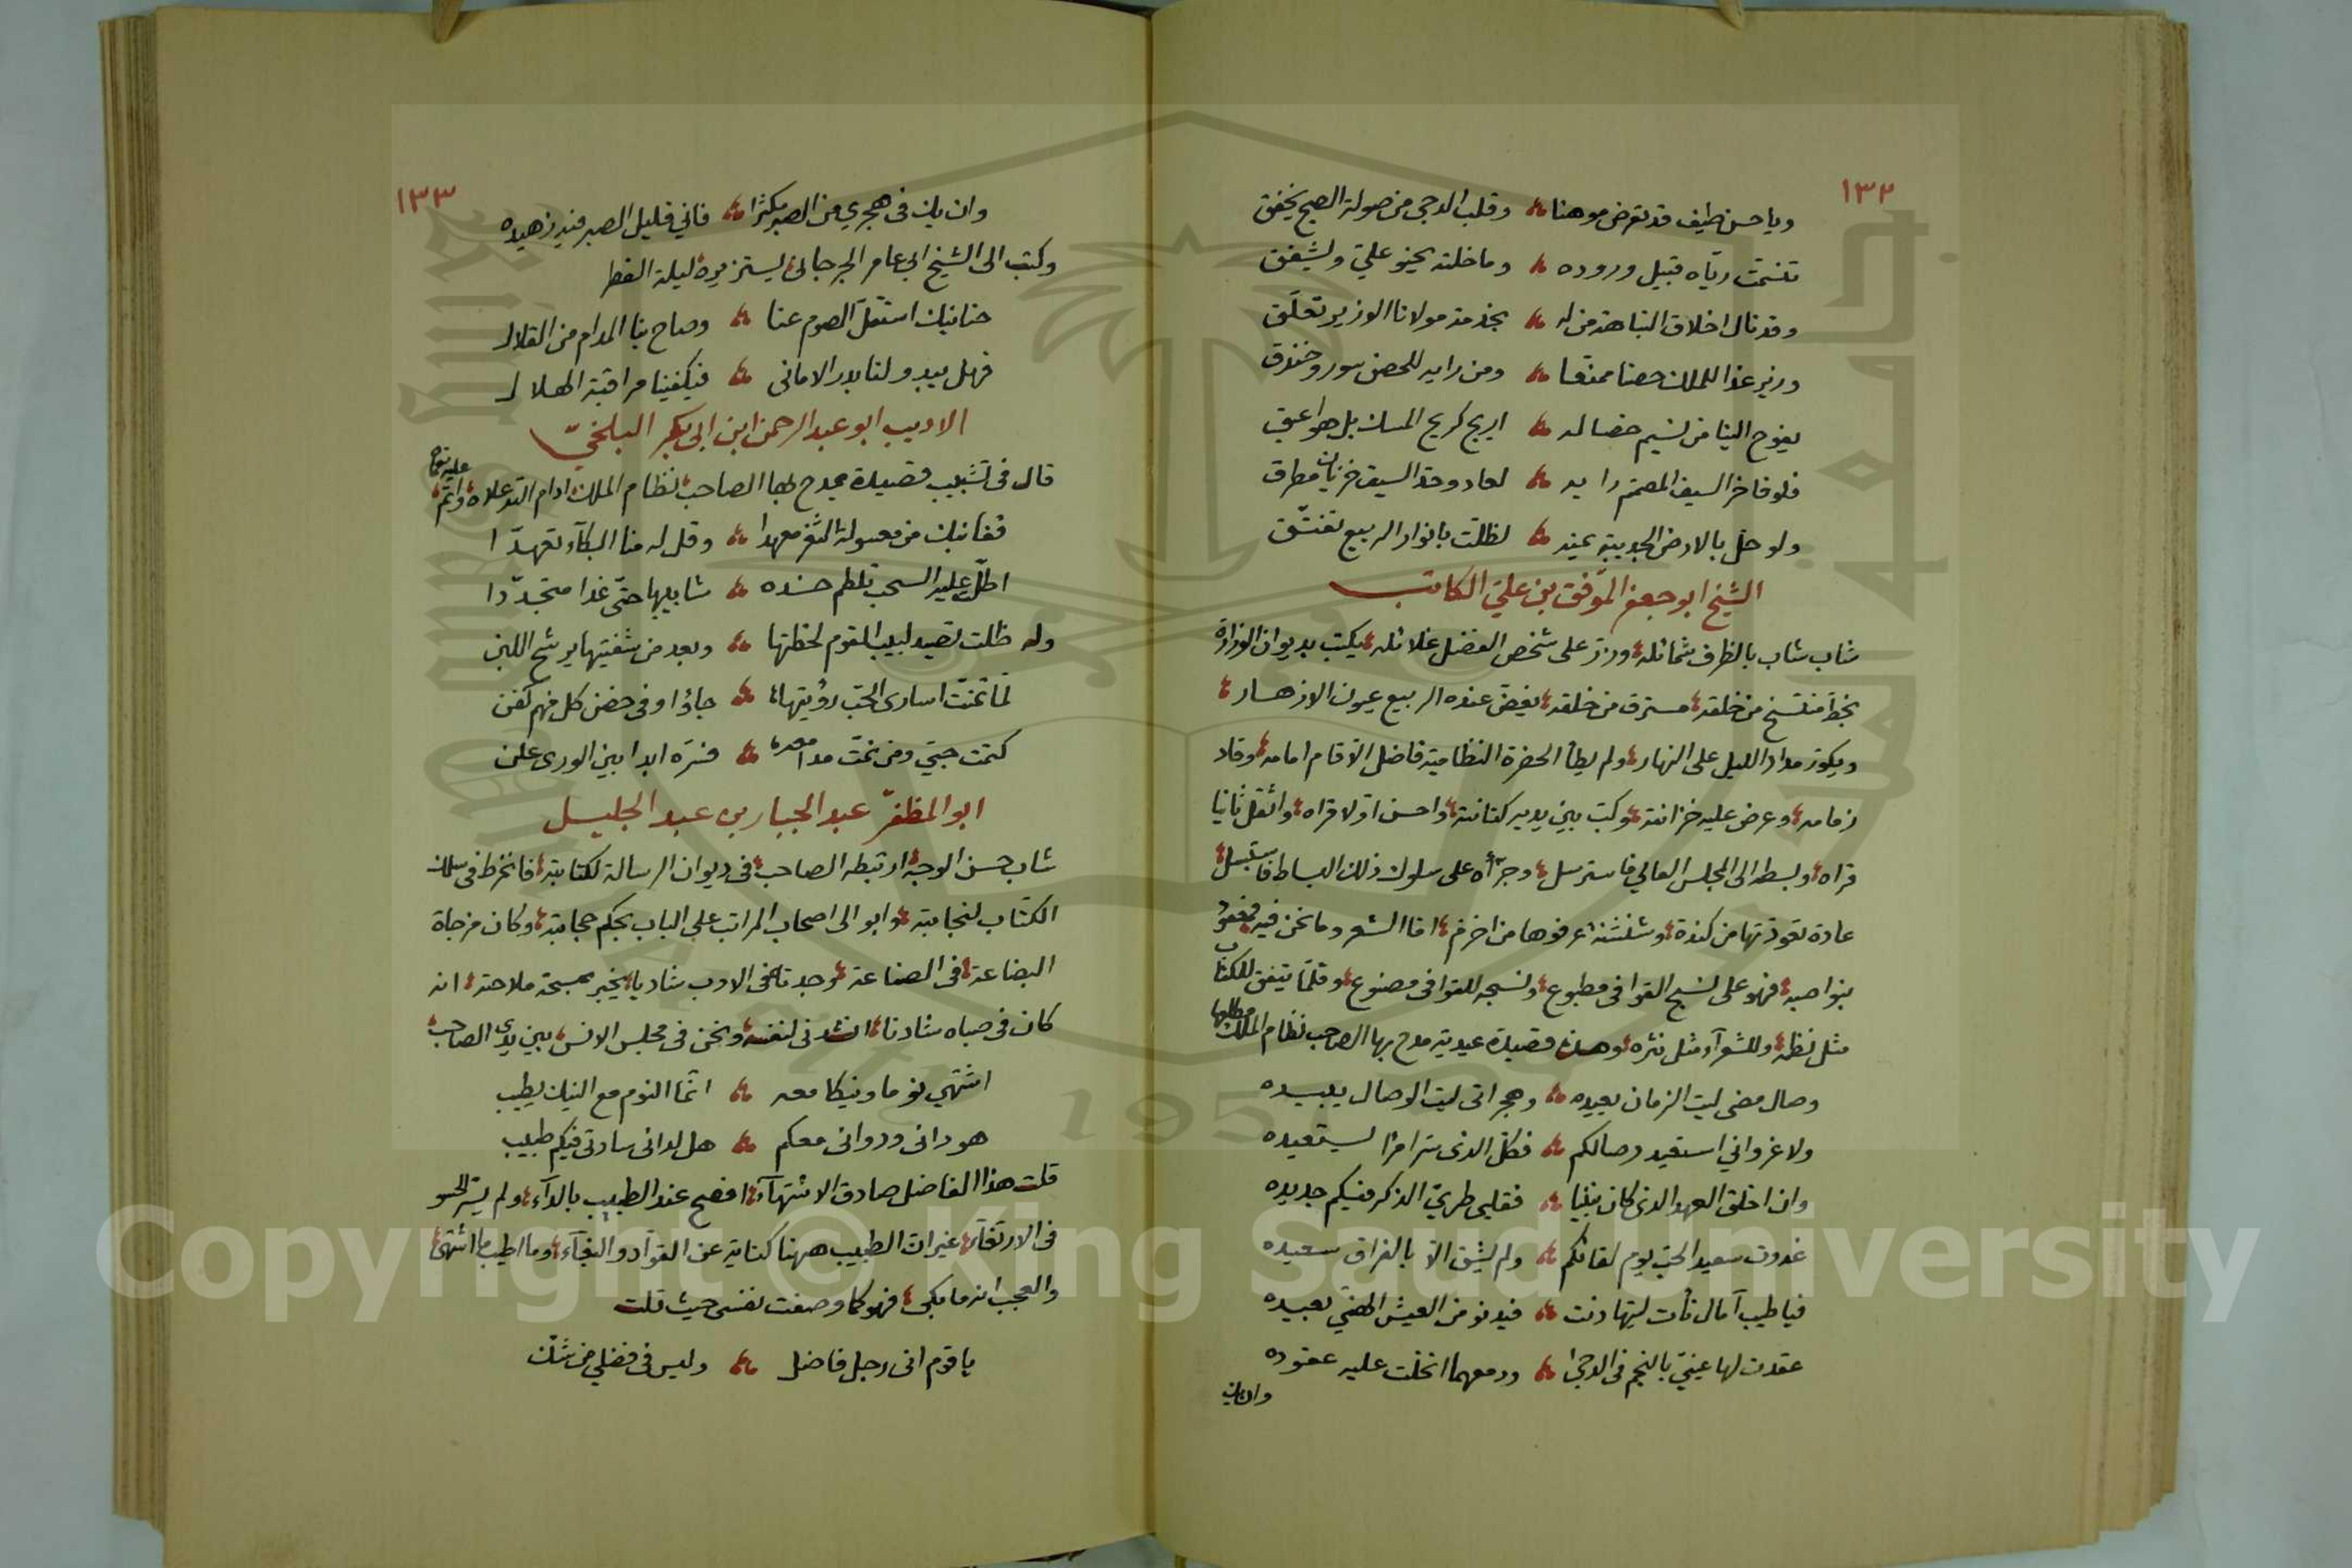 ١٣٢
ويا حسن طيف قد تعرض موهنا وقلب الدجى من صولة الصبح يخفق
تنسمت رياه قبيل وروده وما خلته يحنو عليّ ويشفق
وقد نال اخلاق النباهة من له بخدمة مولانا الوزير تعلّق
وزير غدا للملك حصنا ممنعا ومن رايه للحصن سور وخندق
يفوح الينا من نسيم خصاله اريج كريح المسك بل هو اعبق
فلو فاخر السيف المصمّم رايه لعاد وحد السيف خزيان مطرق
ولو حلّ بالارض الجديبة يمنه لظلّت بانوار الربيع تفتّق
الشيخ ابو جعفر الموّفق بن عليّ الكاتب
شاب شاب بالظرف شمائله وزرّ على شخص الفضل غلائله يكتب بديوان الوزارة
بخط منتسخ من خلقه مسترق من خلقه يغضّ عنده الربيع عيون الازهار
ويكوّر مداد الليل على النهار ولم يطأ الحضرة النظامية فاضل الا قام امامه وقاد
زمامه وعرض عليه خزانته وكبّ بين يديه كنانته واحسن اوّلا قراه واثقل ثانيا
قراه وبسطه الى المجلس العالي فاسترسل وجرّأه على سلوك ذلك البساط فاستبسل
عادة تعوذتها من كندة وشنشنة عرفوها من اخزم امّا الشعر وما نحن فيه معقود
بنواصيه فهو على نسج القوافى مطبوع ونسجه للقوافى مصنوع وقلّما يتفق للكتاب
مثل نظمه وللشعرآء مثل نثره وهذه قصيدة عيدية مدح بها الصاحب نظام الملك مطلعها
وصال مضى ليت الزمان يعيده وهجر اتى ليت الوصال يبيده
ولا غرو اني استعيد وصالكم فكلّ الذى سرّ امرا يستعيده
وان اخلق العهد الذى كان بيننا فقلبى طريّ الذكر فيكم جديده
غدوت سعيد الحبّ يوم لقائكم ولم يشق الّا بالفراق سعيده
فيا طيب آمال نأت ليتها دنت فيدنو من العيش الهنيّ بعيده
عقدت لها عينيّ بالنجم فى الدجى ودمعهما انحلّت عليه عقوده
وان يك
١٣٣
وان يك فى هجري من الصبر مكثرا فاني قليل الصبر فيه زهيده
وكتب الى الشيخ ابي عامر الجرجانى يستزيره ليلة الفطر
حنانيك استقلّ الصوم عنا وصاح بنا المدام من القلال
فهل يبدو لنا بدر الامانى فيكفينا مراقبة الهلال
الاديب ابو عبد الرحمن ابن ابى بكر البلخيّ
قال فى تشبيب قصيدة يمدح بها الصاحب نظام الملك ادام الله علاه واتمّ عليه نعماه
قفا نبك من معسولة الثغر معهدا وقل له منا البكآء تعهدّا
اطلّ عليه السحب تلطم خده شابيبها حتّى غدا متجدّدا
وله ظلت تصيد لبيب القوم لحظتها وبعد من شفتيها يرشح اللبن
لما تمنت اسارى الحبّ رؤيتها جاؤا وفى حضن كل منهم كفن
كتمت حبّي ومن نمّت مدامعه فسرّه ابدا بين الورى علن
ابو المظفرّ عبد الجبار بن عبد الجليل
شاب حسن الوجه ارتبطه الصاحب فى ديوان الرسالة لكتابته فانخرط فى سلك
الكتّاب لنجابته وابو الى اصحاب المراتب على الباب بحكم حجابته وكان مزجاة
البضاعة فى الصناعة وجدته فى الادب شاديا يخبر بمسحة ملاحته انه
كان فى صباه شادنا انشدنى لنفسه ونحن فى مجلس الانس بين يدى الصاحب
اشتهي نوما ونيكا معه انّما النوم مع النيك يطيب
هو دائى ودوائى معكم هل لدائى سادتى فيكم طبيب
قلت هذا الفاضل صادق الاشتهآء افصح عند الطبيب بالدآء ولم يسرّ الحسو
فى الارتغآء غير ان الطبيب ههنا كناية عن القوّاد والبغّاء وما اطيب ما اشتهى
والعجب انه ما بكى فهو كما وصفت نفسى حيث قلت
يا قوم انى رجل فاضل وليس فى فضلي من شكّ